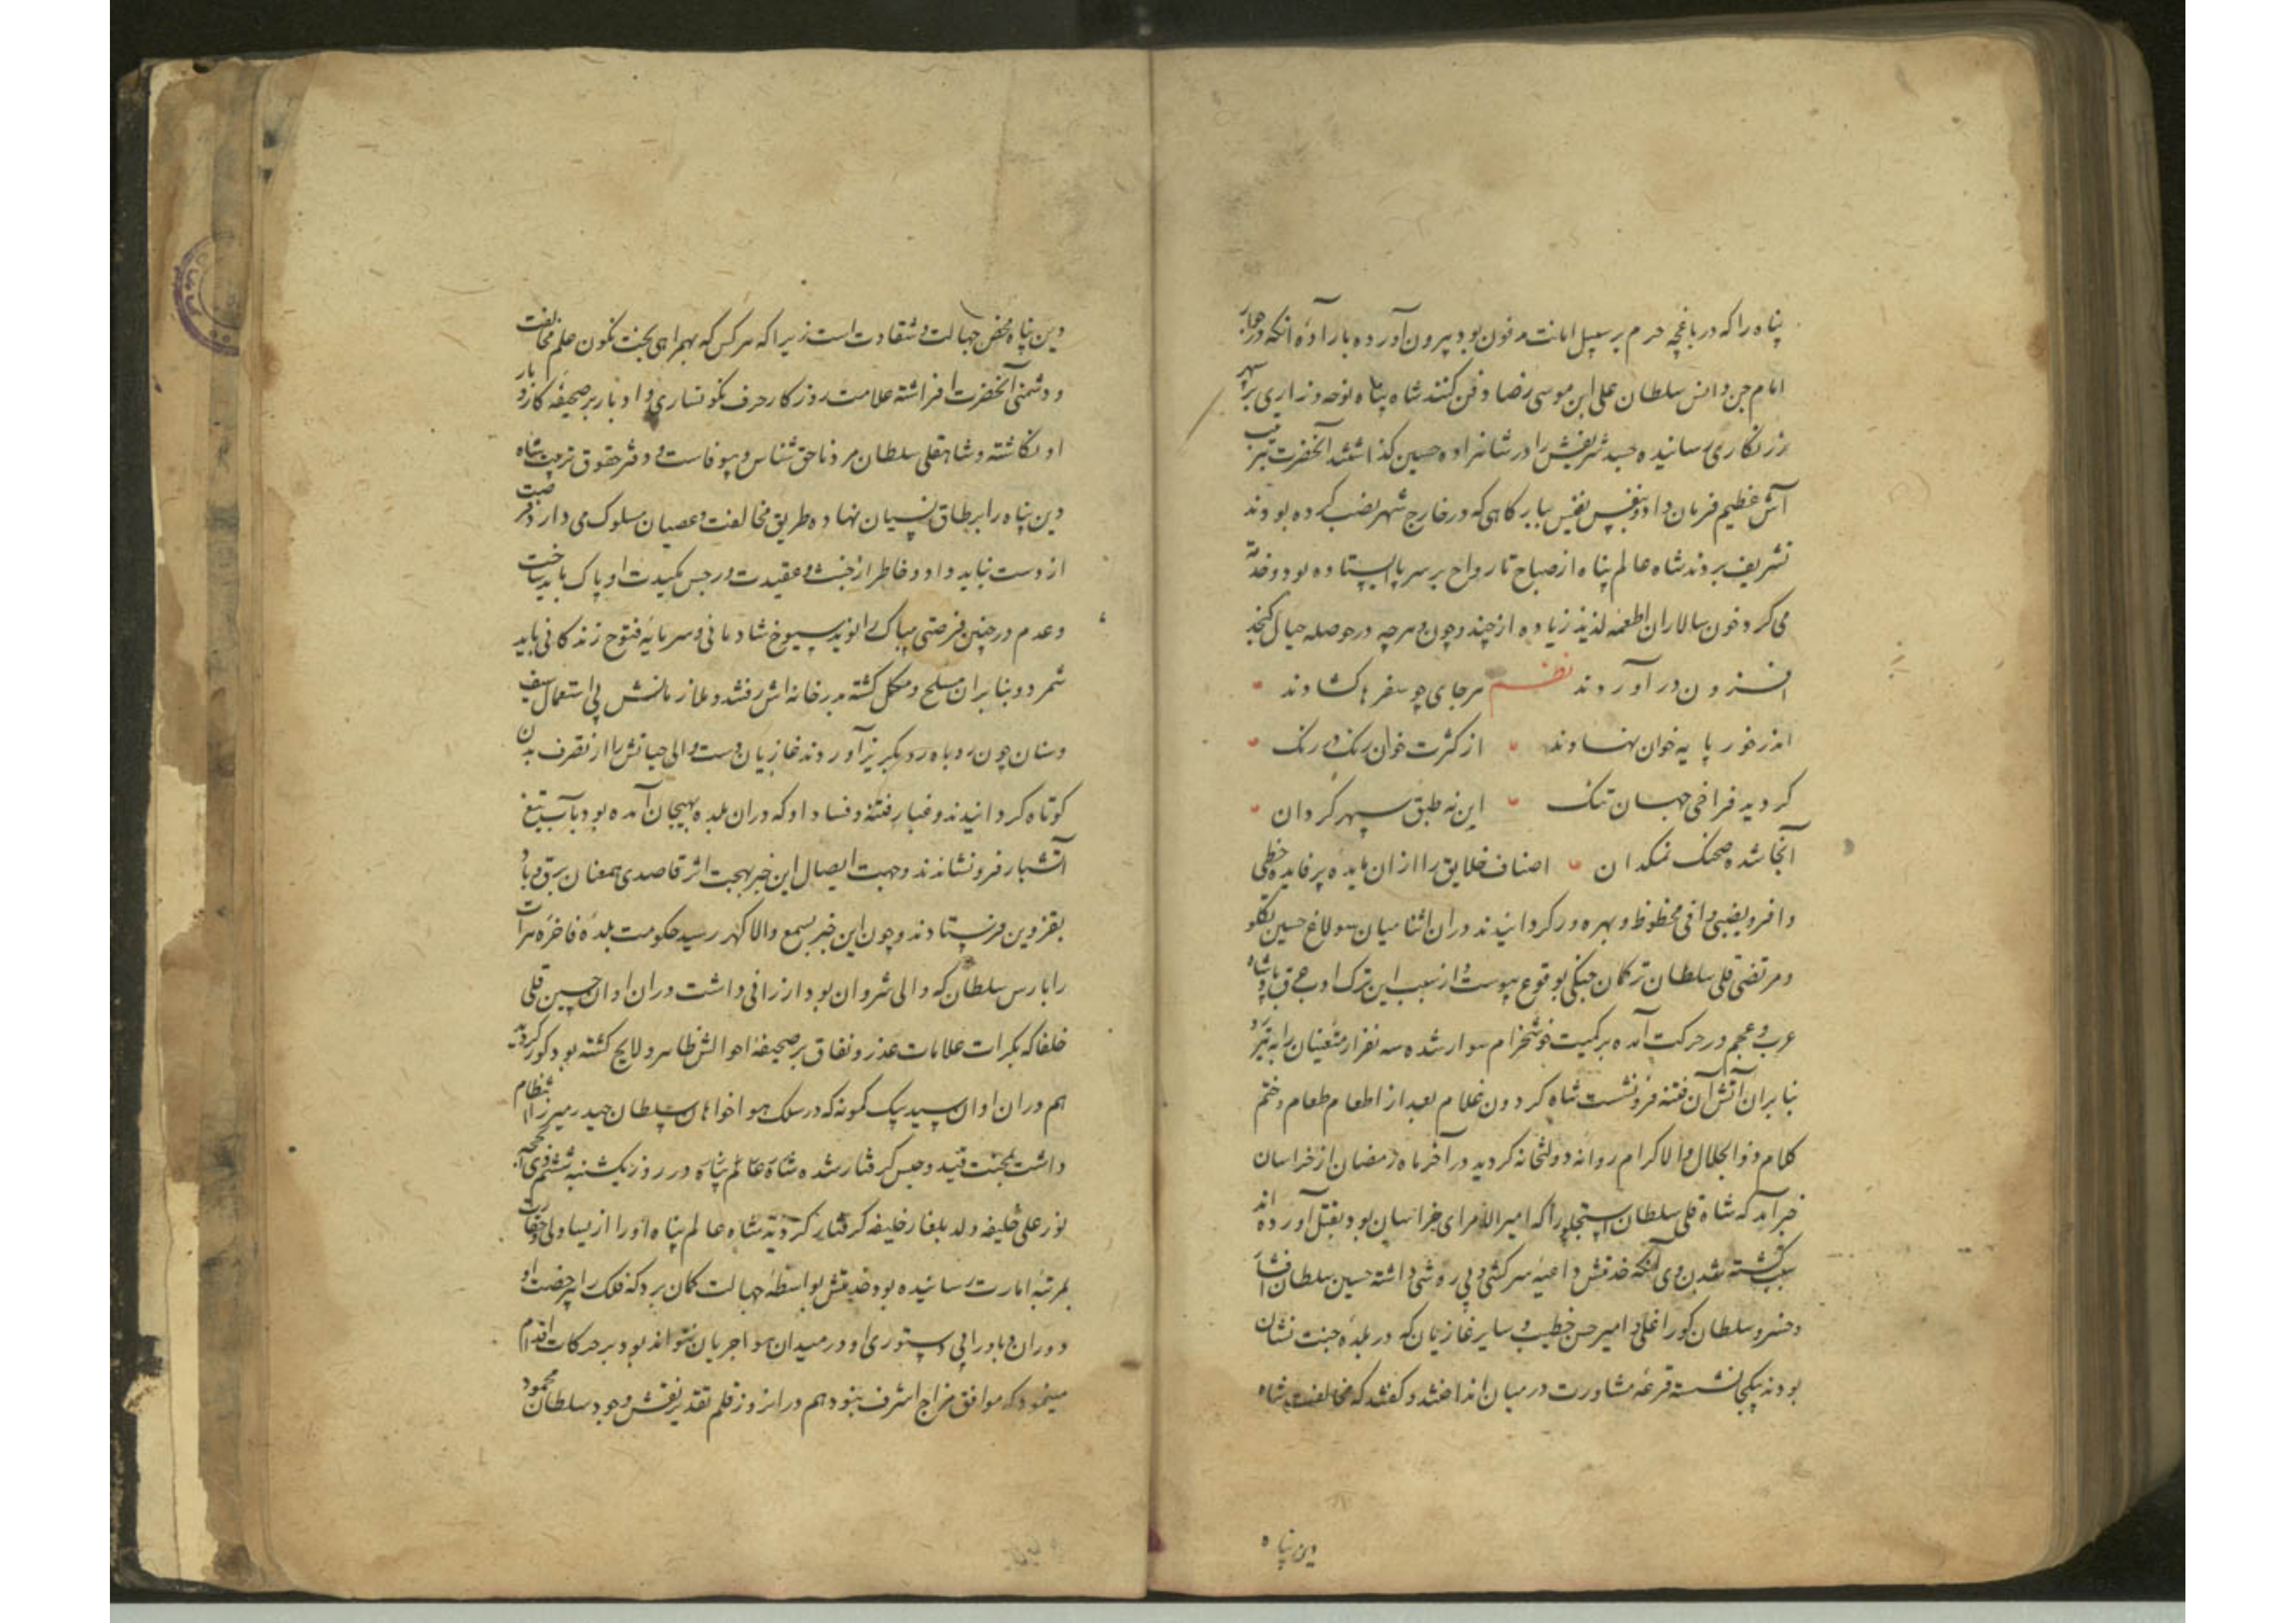 پناه را که در باغچه حرم بر سبیل امانت مدفون بود بیرون آورده بار اراده آنکه در جوار
امام جن و انس سلطان علی ابن موسی رضا دفن کنند شاه پناه نوحه و زاری بر سپهر
زرنکاری رسانیده جسد شریفش را در شاهزاده حسین کذاشتند آنحضرت بترتیب
آش عظیم فرمان داد و بنفس نفیس ببارکاهی که در خارج شهر نصب کرده بودند
تشریف بردند شاه عالم پناه از صباح تا رواح بر سر پا ایستاده بود و خدمت
می کرد خون سالاران اطعمه لذیذ زیاده از چند و چون و هر چه در حوصله خیال کنجد
افزون در آوردند نظم هر جای چو سفرها کشادند
اندر خور پایه خوان نهادند از کثرت خوان رنک در رنک
کردید فراخی جهان تنک این نه طبق سپهر کردان
آنجا شده صحنک نمکدان اصناف خلایق را از ان مایده پر فایده حظی
وافر و نصیبی وافی محظوظ و بهره ور کردانیدند در ان اثنا میان سولاغ حسین تکلو
و مرتضی قلی سلطان ترکمان جنکی بوقوع پیوست و از سبب این ترک ادب عرق پادشاه
عرب و عجم در حرکت آمده بر کمیت خوشخرام سوار شده سه نفر از متعینان را به تیر زد
بنابران آتش آن فتنه فرو نشست شاه کردون غلام بعد از اطعام طعام و ختم
کلام ذوالجلال والاکرام روانه دولتخانه کردید در آخر ماه رمضان از خراسان
خبر آمد که شاه قلی سلطان استجلو را که امیر الامرای خراسان بود بقتل آورده اند
سبب کشته شدن وی آنکه خدمتش داعیه سرکشی و بی روشی داشته حسین سلطان افشار
و خسرو سلطان کور اغلی و امیر حسن خطیب و سایر غازیان که در بلده جنت نشان
بودند یکجا نشسته قرعه مشاورت در میان انداختند و کفتند که مخالفت شاه
دین پناه
دین پناه محض جهالت و شقاوت است زیرا که هر کس که بهمراهی بخت نکون علم مخالفت
و دشمنی آنحضرت افراشته علامت روزکار حرف نکونساری و ادبار بر صحیفه کار و بار
او نکاشته و شاهقلی سلطان مرد ناحق شناس و بیوفاست و دفتر حقوق تربیت شاه
دین پناه را بر طاق نسیان نهاده طریق مخالفت و عصیان مسلوک می دارد فرصت
از دست نباید داد و خاطر از خبث عقیدت و رجس مکیدت او پاک باید ساخت
و عدم در چنین فرصتی را نوید سیوخ شادمانی و سرمایه فتوح زندکانی باید
شمرد و بنابران مسلح و مکمل کشته بدر خانه اش رفتند و ملازمانش بی استعمال سیف
و سنان چون روباه رو بکریز آوردند غازیان دست والی حیاتش را از تصرف بدن
کوتاه کردانیدند و غبار فتنه و فساد او که در ان بلده بهیجان آمده بود بآب تیغ
آتشبار فرو نشاندند و جهت ایصال این خبر بهجت اثر قاصدی همعنان برق و باد
بقزوین فرستادند و چون این خبر بسمع والا کهر رسید حکومت بلده فاخره هرات
را بارس سلطان که والی شروان بود ارزانی داشت در ان اوان حسین قلی
خلفا که بکرات علامات غدر و نفاق بر صحیفه احوالش ظاهر و لایح کشته بود کور کردید
هم در ان اوان سید بیک کمونه که در سلک هواخواهان سلطان حیدر میرزا انتظام
داشت بمحنت قید و حبس کرفتار شده شاه عالم پناه در روز یکشنبه ششم ذی الحجه
نور علی خلیفه ولد بلغار خلیفه کرفتار کردید شاه عالم پناه او را از یساولی و حقارت
بمرتبه امارت رسانیده بود خدمتش بواسطه جهالت کمان برد که فلک را بی رخصت او
دوران و باد را بی دستوری او در میدان هوا جریان نتواند بود بر حرکات اقدام
مینمود که موافق مزاج اشرف نبود هم در انروز قلم تقدیر نقش وجود سلطان محمود